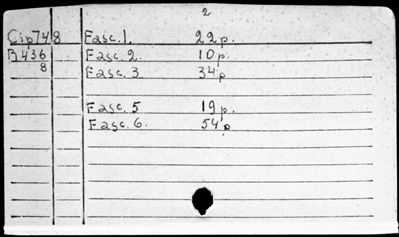 2
Cip748 Fasc. 1. 22p.
B436 Fasc. 2. 10p.
8 Fasc. 3. 34p
Fasc. 5 19p.
Fasc. 6. 54p